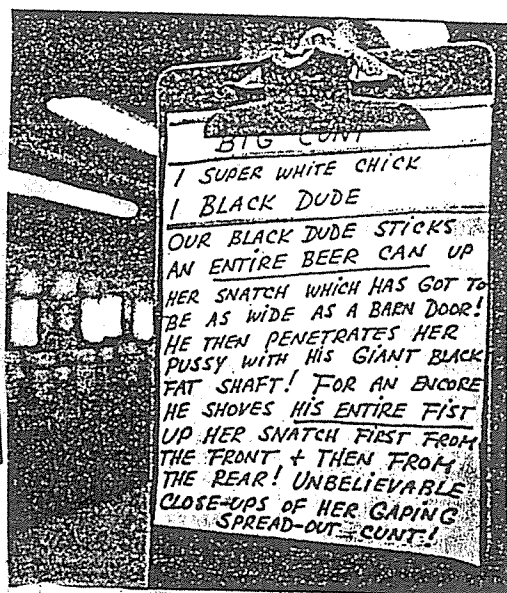 BIG CUNT
1 SUPER WHITE CHICK
1 BLACK DUDE
OUR BLACK DUDE STICKS
AN ENTIRE BEER CAN UP
HER SNATCH WHICH HAS GOT TO
BE AS WIDE AS A BARN DOOR!
HE THEN PENETRATES HER
PUSSY WITH HIS GIANT BLACK
FAT SHAFT! FOR AN ENCORE
HE SHOVES HIS ENTIRE FIST
UP HER SNATCH FIRST FROM
THE FRONT + THEN FROM
THE REAR! UNBELIEVABLE
CLOSE-UPS OF HER GAPING
SPREAD-OUT CUNT!